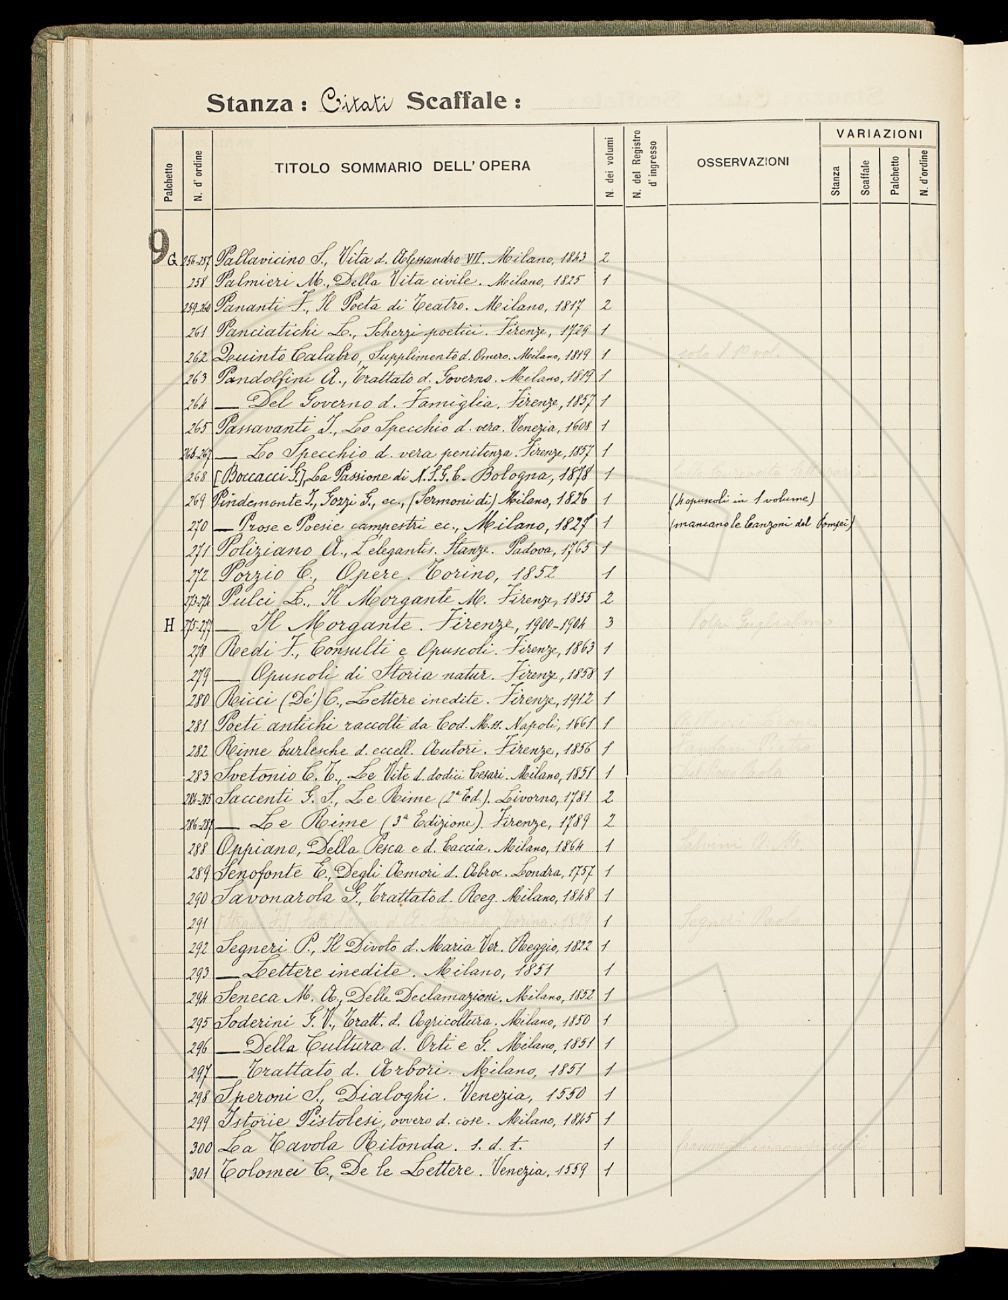 Stanza: Citati Scaffale:
Palchetto N. d'ordine TITOLO SOMMARIO DELL'OPERA N. dei volumi N. del Registro d'ingresso OSSERVAZIONI VARIAZIONI Stanza Scaffale Palchetto N. d'ordine
9
G 256-257 Pallavicino S., Vita d. Alessandro VII. Milano, 1843 2
258 Palmieri M., Della Vita civile. Milano, 1825 1
259-260 Pananti F., Il Poeta di Teatro. Milano, 1817 2
261 Panciatichi L., Scherzi poetici. Firenze, 1729 1
262 Quinto Calabro, Supplimento d. Omero. Milano, 1819 1 solo il 1º vol.
263 Pandolfini A., Trattato d. Governo. Milano, 1819 1
264 — Del Governo d. Famiglia. Firenze, 1857 1
265 Passavanti J., Lo Specchio d. vera. Venezia, 1608 1
266-267 — Lo Specchio d. vera penitenza. Firenze, 1857 1
268 [Boccacci G.] La Passione di N.S.G.C. Bologna, 1878 1
269 Pindemonte I., Gozzi G., ec., (Sermoni di) Milano, 1826 1 (4 opuscoli in 1 volume)
270 — Prose e Poesie campestri ec., Milano, 1827 1 (mancano le Canzoni del Compei)
271 Poliziano A., L'elegantis. Stanze. Padova, 1765 1
272 Porzio C., Opere. Torino, 1852 1
273-274 Pulci L., Il Morgante M. Firenze, 1855 2
H 275-277 — Il Morgante. Firenze, 1900-1904 3 Volpi Guglielmo
278 Redi F., Consulti e Opuscoli. Firenze, 1863 1
279 — Opuscoli di Storia natur. Firenze, 1858 1
280 Ricci (De') C., Lettere inedite. Firenze, 1912 1
281 Poeti antichi raccolti da Cod. Mss. Napoli, 1661 1
282 Rime burlesche d. eccell. Autori. Firenze, 1856 1 Fanfani Pietro
283 Svetonio C. T., Le Vite d. dodici Cesari. Milano, 1851 1 Del Rosso Paolo
284-285 Saccenti G. S., Le Rime (2ª Ed.). Livorno, 1781 2
286-287 — Le Rime (3ª Edizione). Firenze, 1789 2
288 Oppiano, Della Pesca e d. Caccia. Milano, 1864 1 Salvini
289 Senofonte E., Degli Amori d. Abroc. Londra, 1757 1
290 Savonarola G., Trattato d. Reg. Milano, 1848 1
291 1 Segneri Paolo
292 Segneri P., Il Divoto d. Maria Ver. Reggio, 1822 1
293 — Lettere inedite. Milano, 1851 1
294 Seneca M. A., Delle Declamazioni. Milano, 1852 1
295 Soderini G. V., Tratt. d. Agricoltura. Milano, 1850 1
296 — Della Cultura d. Orti e G. Milano, 1851 1
297 — Trattato d. Arbori. Milano, 1851 1
298 Speroni S., Dialoghi. Venezia, 1550 1
299 Istorie Pistolesi, ovvero d. cose. Milano, 1845 1
300 La Tavola Ritonda. s. d. t. 1
301 Tolomei C., De le Lettere. Venezia, 1559 1